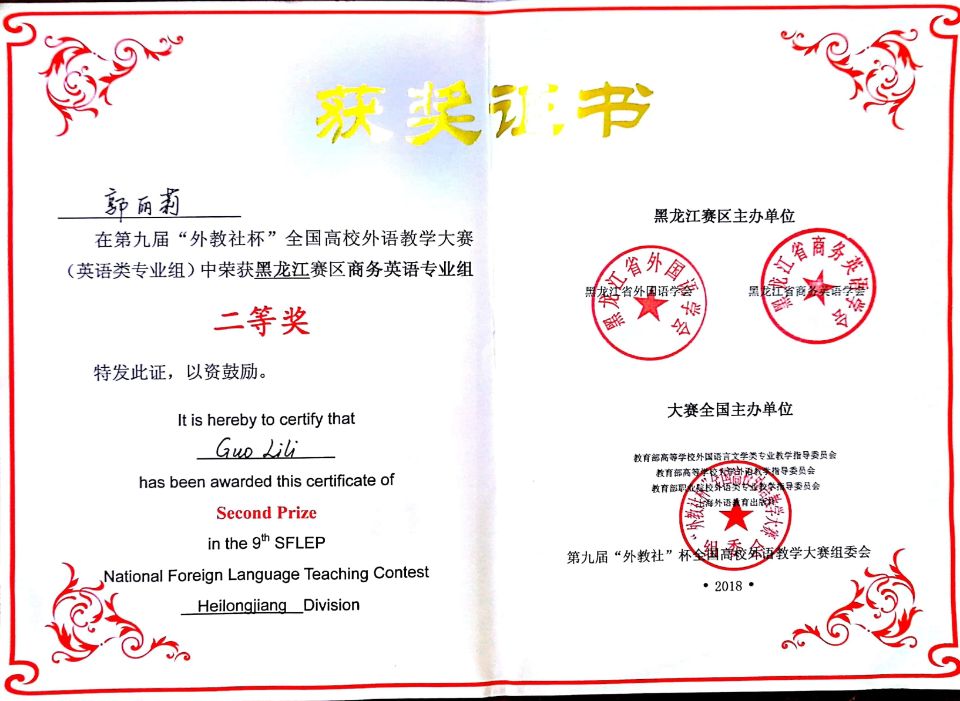 获奖证书
郭丽莉
在第九届“外教社杯”全国高校外语教学大赛
（英语类专业组）中荣获黑龙江赛区商务英语专业组
二等奖
特发此证，以资鼓励。
It is hereby to certify that
Guo Lili
has been awarded this certificate of
Second Prize
in the 9th SFLEP
National Foreign Language Teaching Contest
Heilongjiang Division
黑龙江赛区主办单位
黑龙江省外国语学会
黑龙江省外国语学会
黑龙江省商务英语学会
黑龙江省商务英语学会
大赛全国主办单位
教育部高等学校外国语言文学类专业教学指导委员会
教育部高等学校大学外语教学指导委员会
教育部职业院校外语类专业教学指导委员会
上海外语教育出版社
“外教社杯”全国高校外语教学大赛
组委会
第九届“外教社”杯全国高校外语教学大赛组委会
·2018·